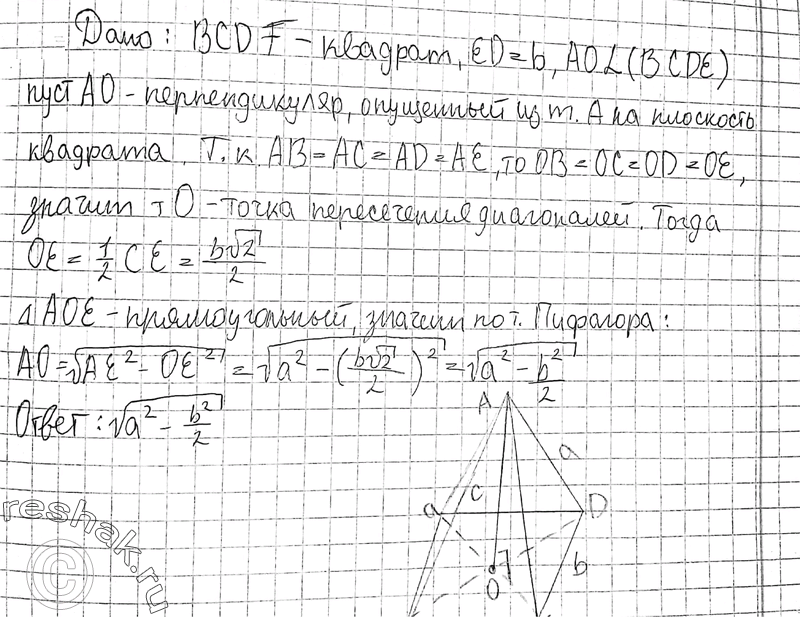 Дано: BCDF - квадрат, ED=b, AO⊥(BCDE)
пуст AO - перпендикуляр, опущенный из т. A на плоскость
квадрата. Т.к. AB=AC=AD=AE, то OB=OC=OD=OE,
значит т O - точка пересечения диагоналей. Тогда
OE = 1/2 CE = b√2/2
△AOE - прямоугольный, значит по т. Пифагора:
AO=√(AE²-OE²) = √(a²-(b√2/2)²) = √(a²-b²/2)
Ответ: √(a²-b²/2)
A
a
c
a
D
b
O
reshak.ru
©